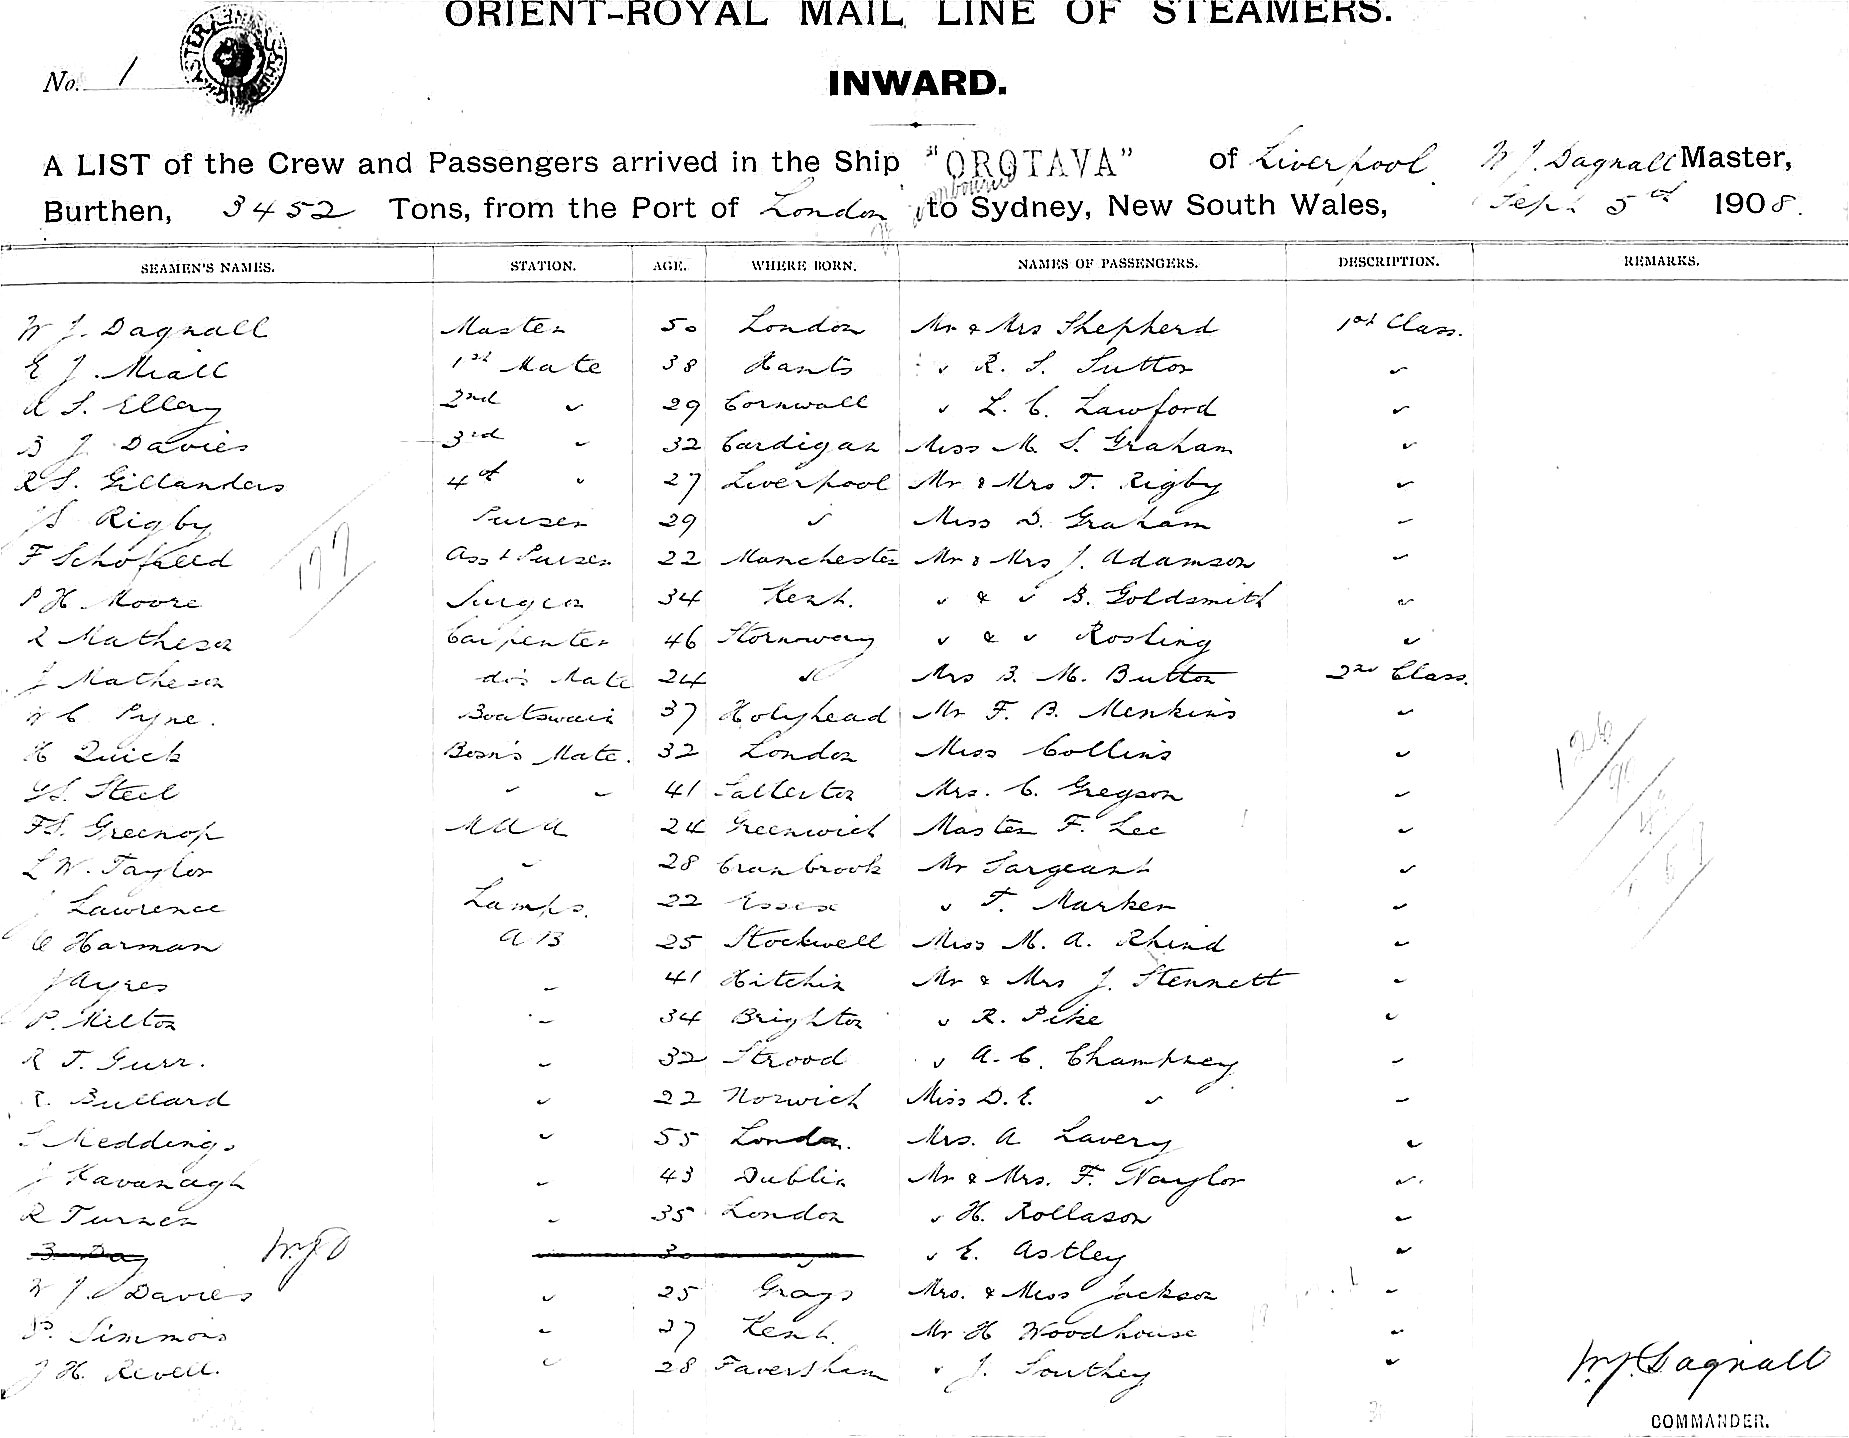 ORIENT-ROYAL MAIL LINE OF STEAMERS.
No. 1
INWARD.
A LIST of the Crew and Passengers arrived in the Ship "OROTAVA" of Liverpool W J. Dagnall Master,
Burthen, 3452 Tons, from the Port of London to Sydney, New South Wales, Sept 5th 1908.
SEAMEN'S NAMES. STATION. AGE. WHERE BORN. NAMES OF PASSENGERS. DESCRIPTION. REMARKS.
W J. Dagnall Master 50 London Mr & Mrs Shepherd 1st Class.
E J. Miall 1st Mate 38 Hants " R. S. Sutton "
S. Ellery 2nd " 29 Cornwall " L. C. Lawford "
J. Davies 3rd " 32 Cardigan Miss M. S. Graham "
R S. Gillanders 4th " 27 Liverpool Mr & Mrs T. Rigby "
S Rigby Purser 29 " Miss D. Graham "
F Schofield Asst Purser 22 Manchester Mr & Mrs J. Adamson "
P H. Moore Surgeon 34 Kent. " & " B. Goldsmith "
R Matheson Carpenter 46 Stornoway " & " Rosling "
J Matheson do's Mate 24 " Mrs B. M. Button 2nd Class.
W C. Pyne. Boatswain 37 Holyhead Mr F. B. Menkins "
H Quick Bosn's Mate. 32 London Miss Collins "
G S. Steel " " 41 Salterton Mrs. C. Gregson "
F S. Greenop M A A 24 Greenwich Master F. Lee "
L W. Taylor " 28 Cranbrook Mr Sargeant "
J Lawrence Lamps. 22 Essex " T. Marker "
C Harman A B 25 Stockwell Miss M. A. Rhind "
J Ayres " 41 Hitchin Mr & Mrs J. Stennett "
P. Milton " 34 Brighton " R. Pike "
R T. Gurr. " 32 Strood " A. C. Champney "
Bullard " 22 Norwich Miss D. E. " "
Meddings " 55 London. Mrs. A Lavery "
J Kavanagh " 43 Dublin Mr & Mrs. F. Naylor "
R Turner " 35 London " H. Rollason "
B. Day W.J.D 30 " E. Astley "
W J. Davies " 25 Grays Mrs. & Miss Jackson "
P. Simmons " 27 Kent. Mr H Woodhouse "
J H. Revell. " 28 Faversham " J. Southey "
W.J. Dagnall
COMMANDER.